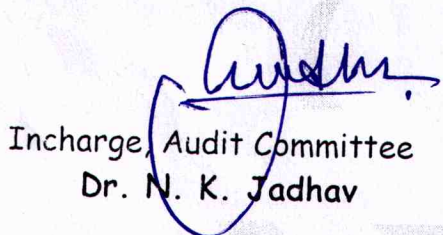 Incharge, Audit Committee
Dr. N. K. Jadhav